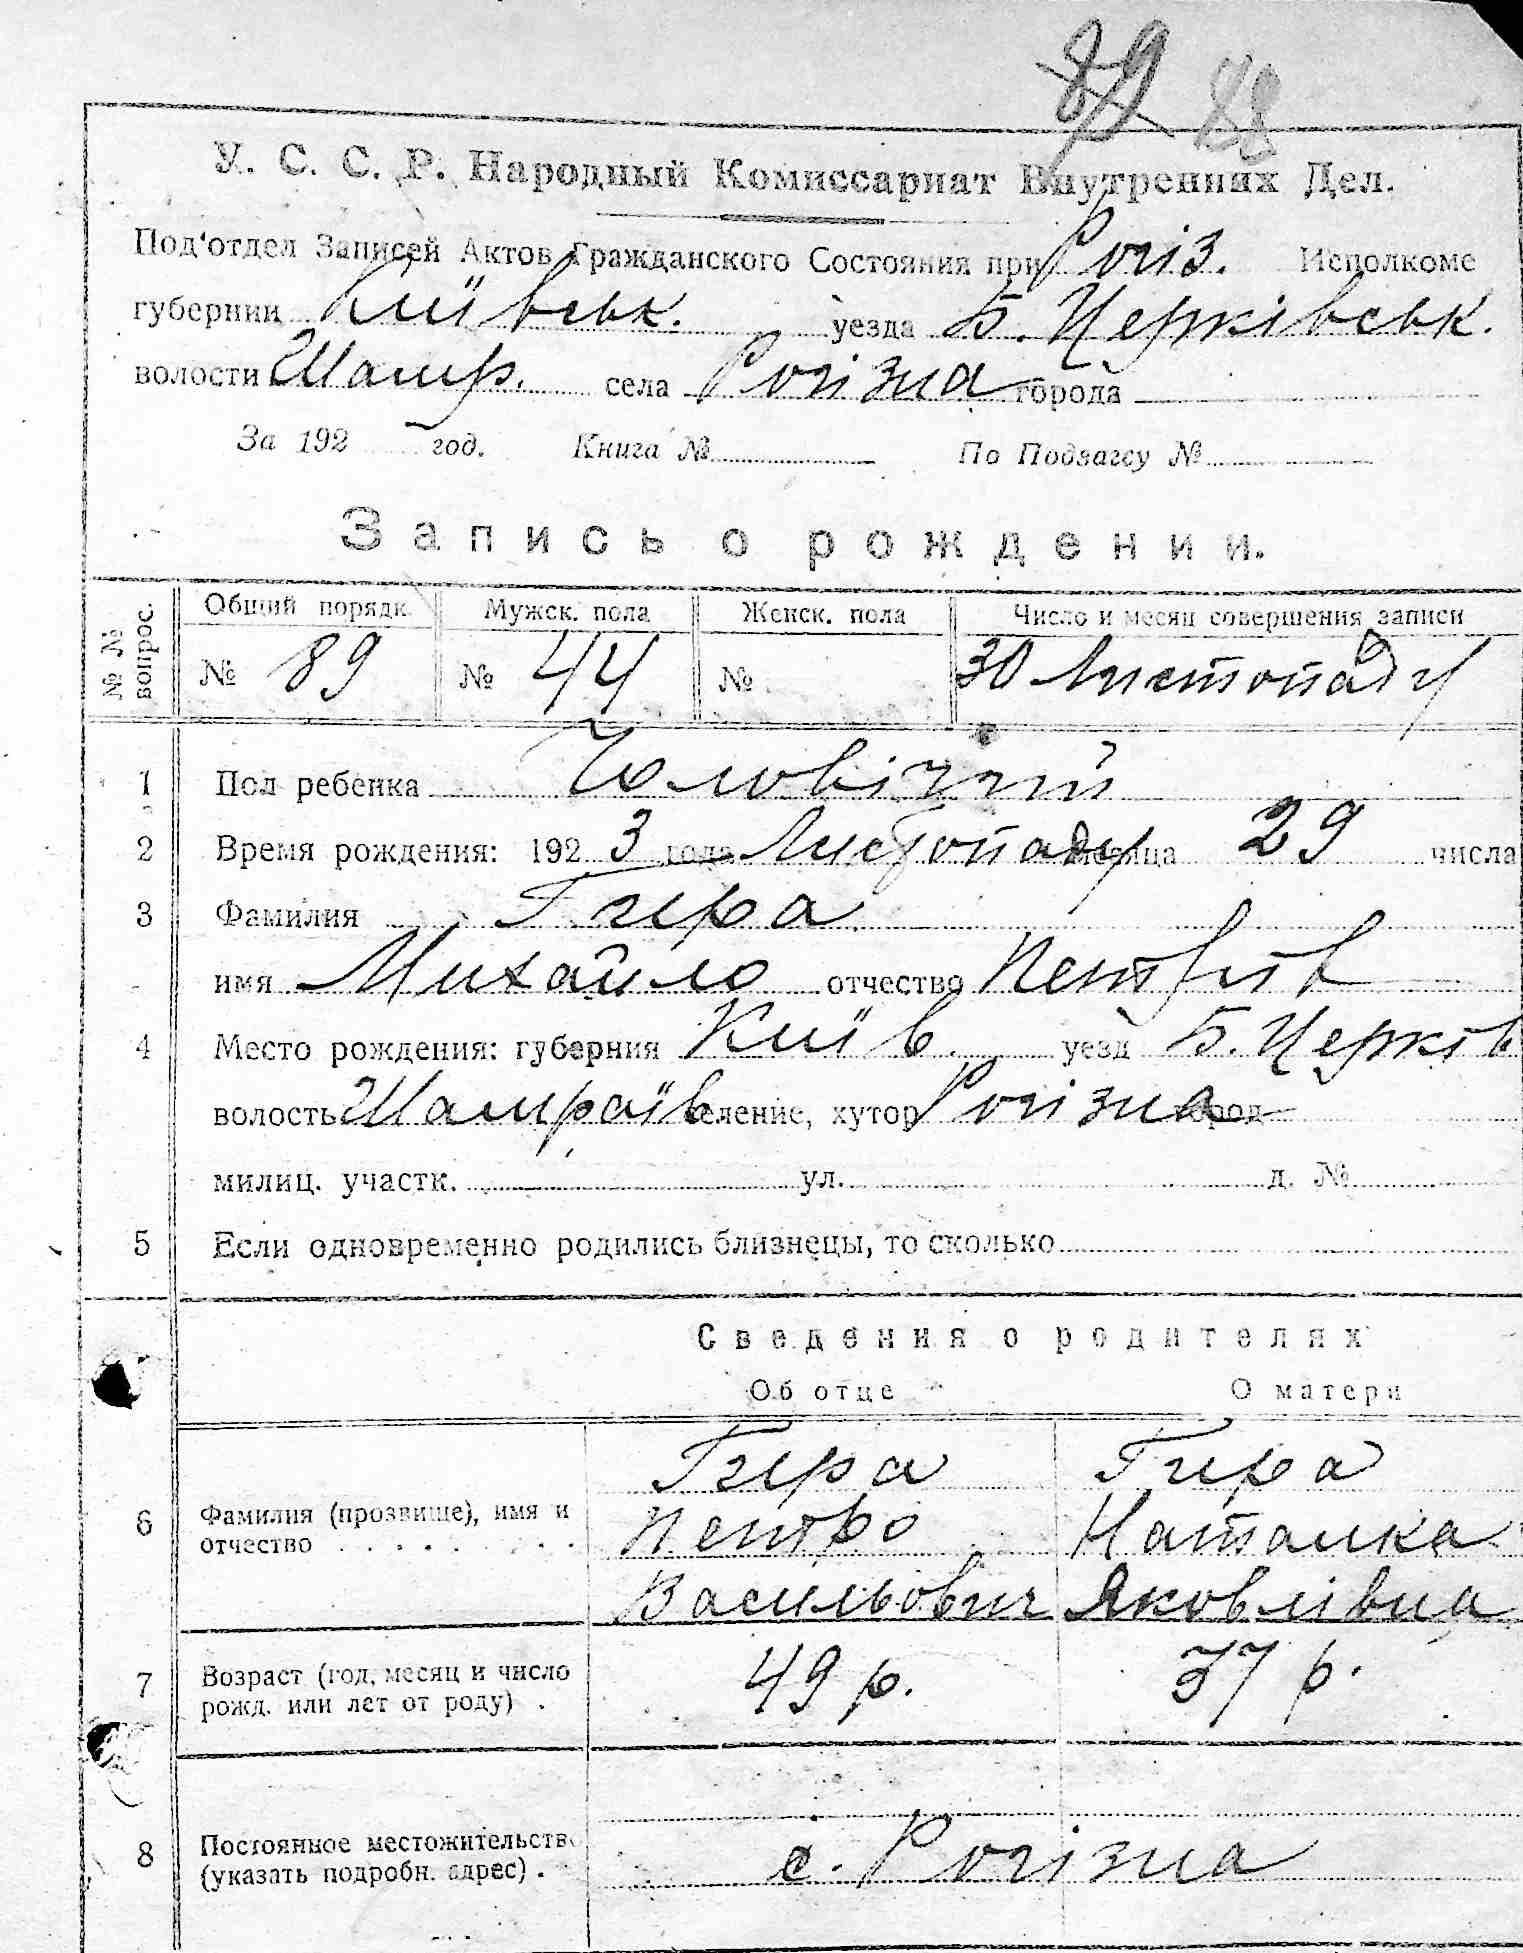 89 88
У. С. С. Р. Народный Комиссариат Внутренних Дел.
Под'отдел Записей Актов Гражданского Состояния при Рогіз. Исполкоме
губернии Київськ. уезда Б. Церківськ.
волости Шамр. села Рогізна города
За 192 год. Книга № По Подзагсу №
Запись о рождении.
№ № вопрос. Общий порядк. Мужск. пола Женск. пола Число и месяц совершения записи
№ 89 № 44 № 30 Листопаду
1 Пол ребенка Чоловічий
2 Время рождения: 1923 года Листопаду месяца 29 числа
3 Фамилия Гира
имя Михайло отчество Петрів
4 Место рождения: губерния Київ. уезд Б. Церків
волость Шамраїв селение, хутор Рогізна город
милиц. участк. ул. д. №
5 Если одновременно родились близнецы, то сколько
Сведения о родителях
Об отце О матери
Гира Гира
6 Фамилия (прозвище), имя и Петро Наталка
отчество Васильович Яковлівна
7 Возраст (год, месяц и число 49 р. 37 р.
рожд. или лет от роду)
8 Постоянное местожительство с. Рогізна
(указать подробн. адрес)